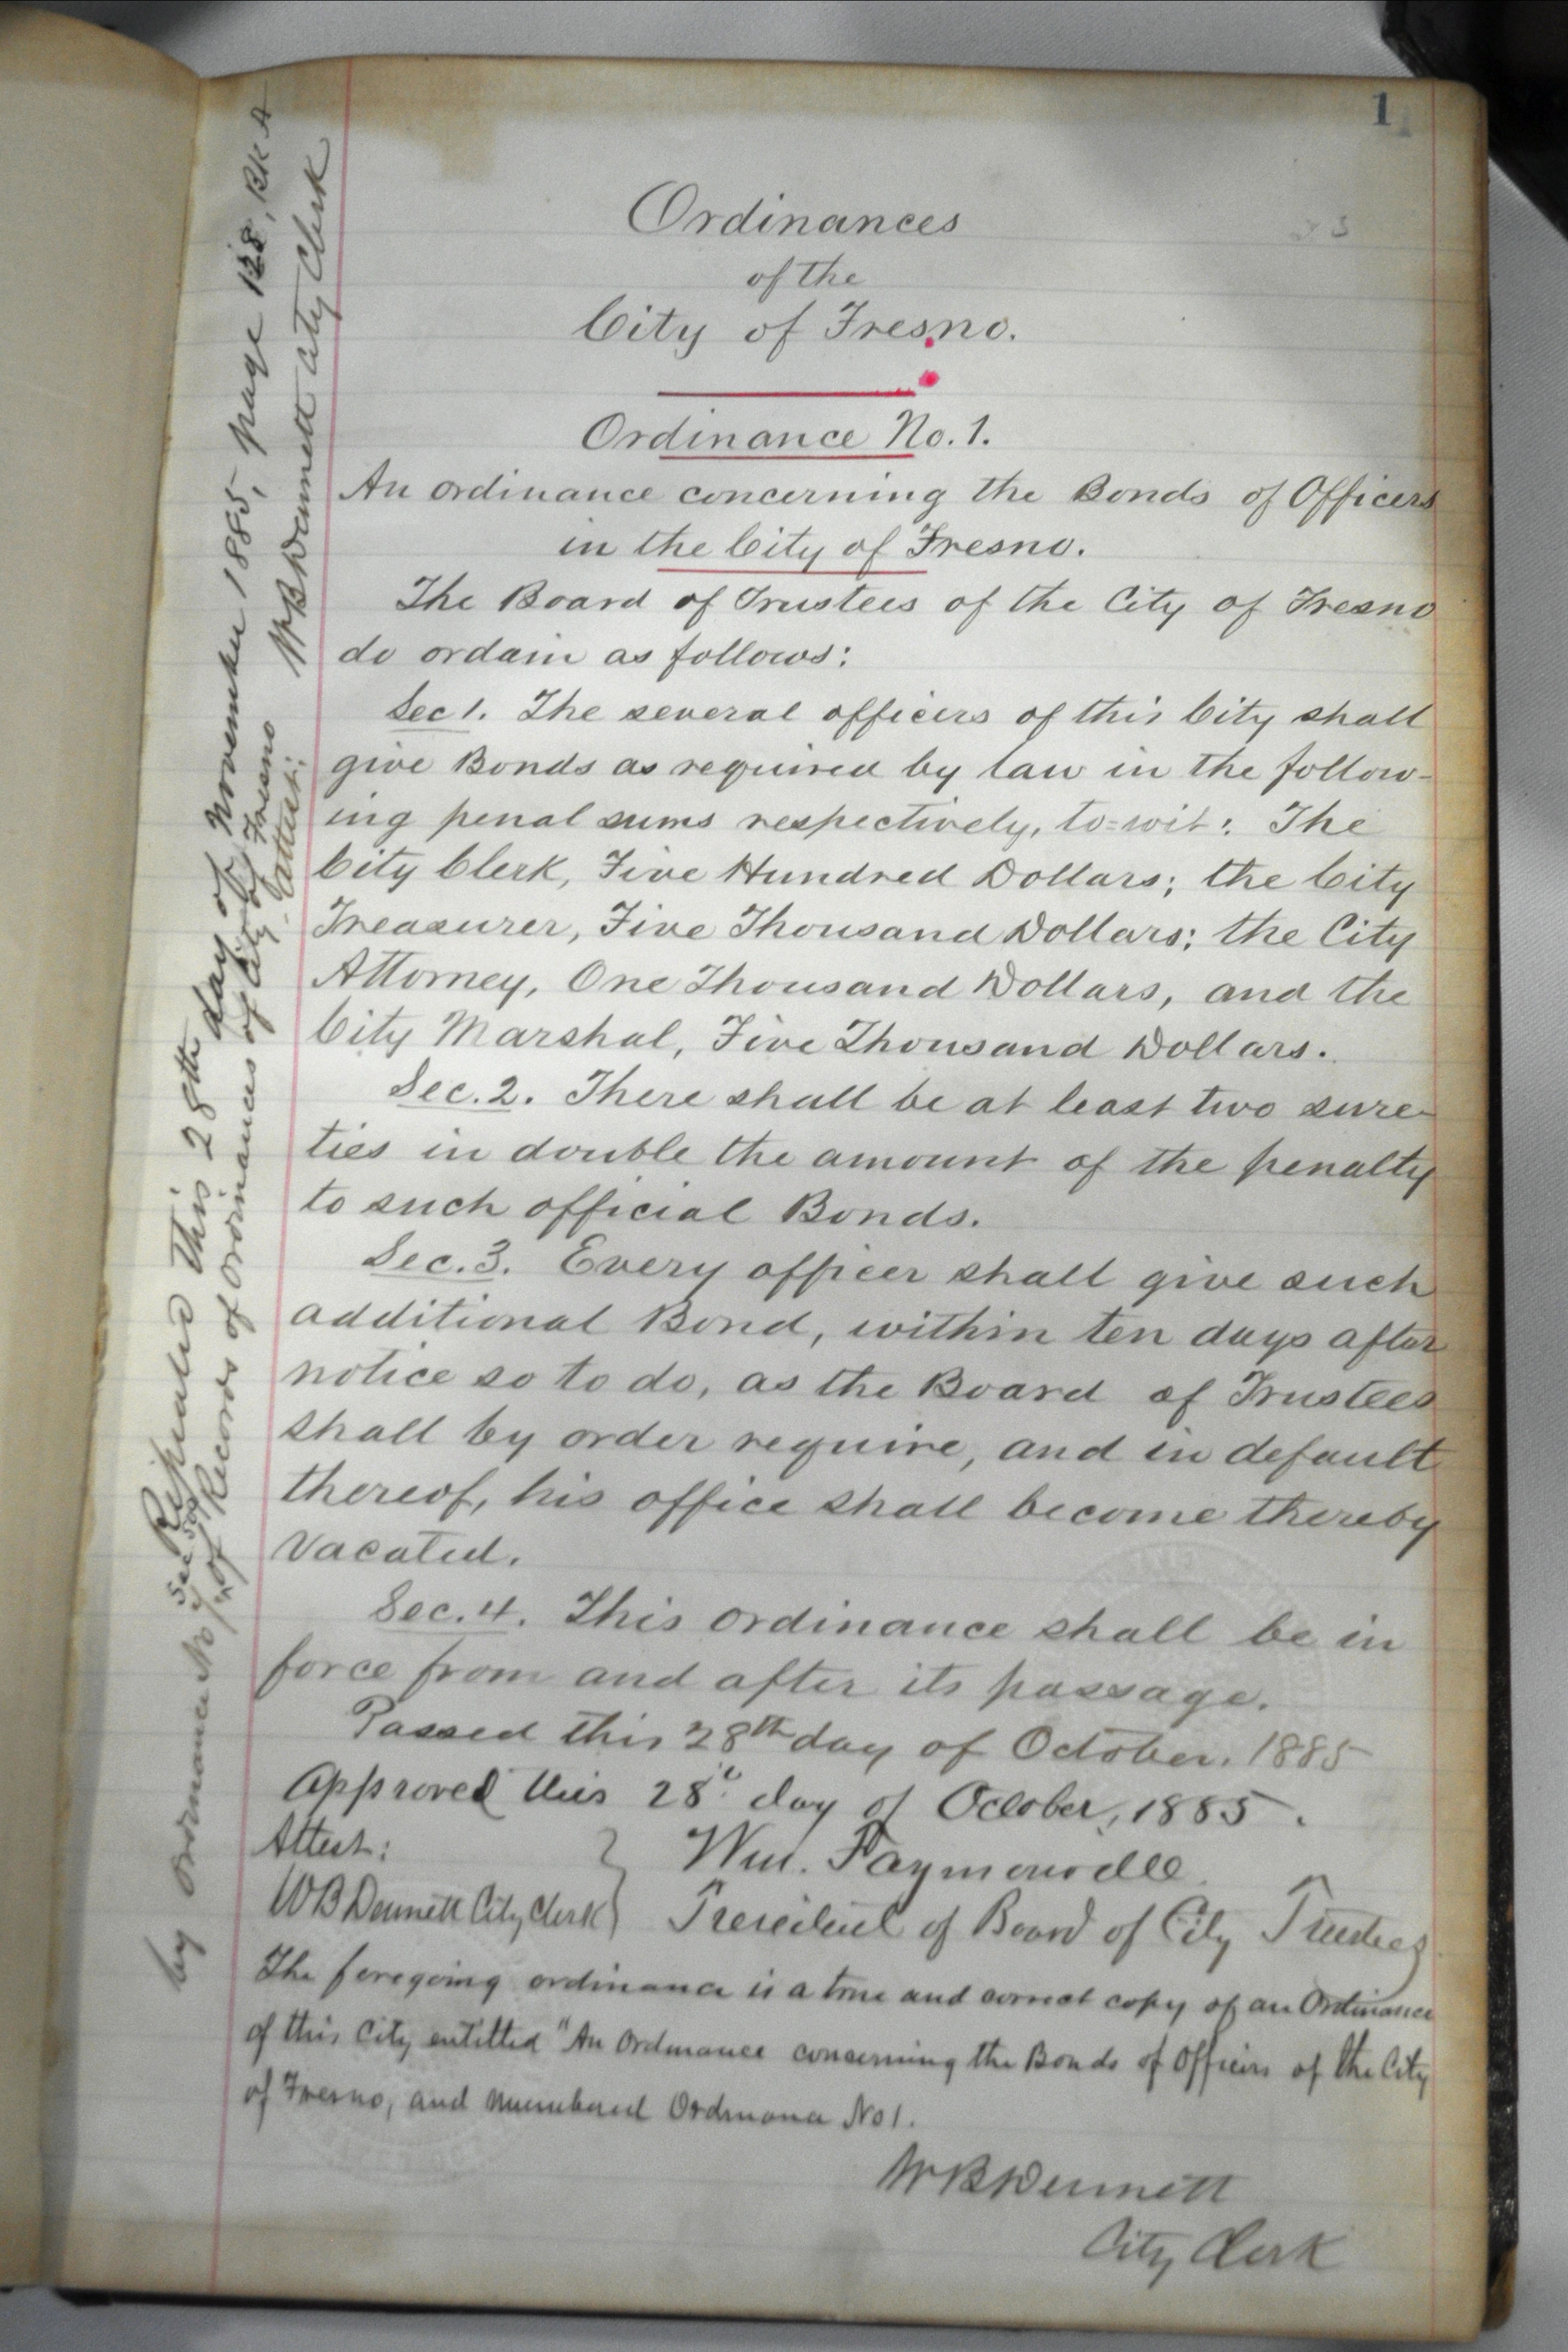 1
Ordinances
of the
City of Fresno.
Ordinance No. 1.
An ordinance concerning the Bonds of Officers
in the City of Fresno.
The Board of Trustees of the City of Fresno
do ordain as follows:
Sec 1. The several officers of this City shall
give Bonds as required by law in the follow-
ing penal sums respectively, to=wit: The
City Clerk, Five Hundred Dollars; the City
Treasurer, Five Thousand Dollars; the City
Attorney, One Thousand Dollars, and the
City Marshal, Five Thousand Dollars.
Sec. 2. There shall be at least two sure-
ties in double the amount of the penalty
to such official Bonds.
Sec. 3. Every officer shall give such
additional Bond, within ten days after
notice so to do, as the Board of Trustees
shall by order require, and in default
thereof, his office shall become thereby
vacated.
Sec. 4. This ordinance shall be in
force from and after its passage.
Passed this 28th day of October. 1885
Approved this 28" day of October, 1885.
Attest: Wm. Faymonville
W B Dennett City Clerk President of Board of City Trustees
The foregoing ordinance is a true and correct copy of an Ordinance
of this City entitled "An Ordinance concerning the Bonds of Officers of the City
of Fresno, and numbered Ordinance No 1.
W B Dennett
City Clerk
Repealed this 28th day of November 1885, page 128, Bk A
by Ordinance No of Records of Ordinances of City of Fresno
Attest: W B Dennett City Clerk